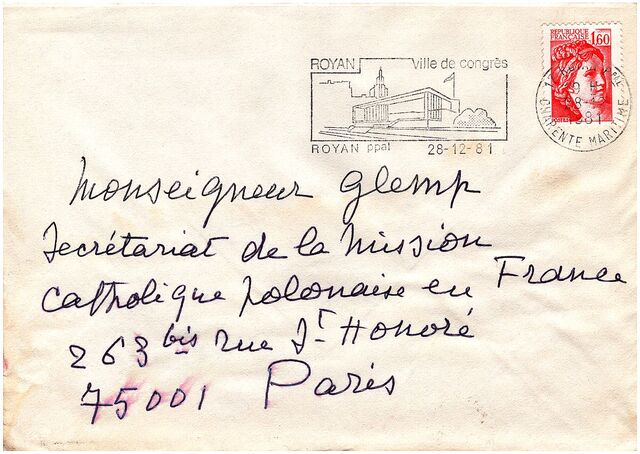 ROYAN Ville de congrès
ROYAN ppal 28-12-81
REPUBLIQUE FRANÇAISE
1,60
POSTES
1981
CHARENTE MARITIME
Monseigneur Glemp
Secrétariat de la Mission
Catholique Polonaise en France
263 bis rue St Honoré
75001 Paris